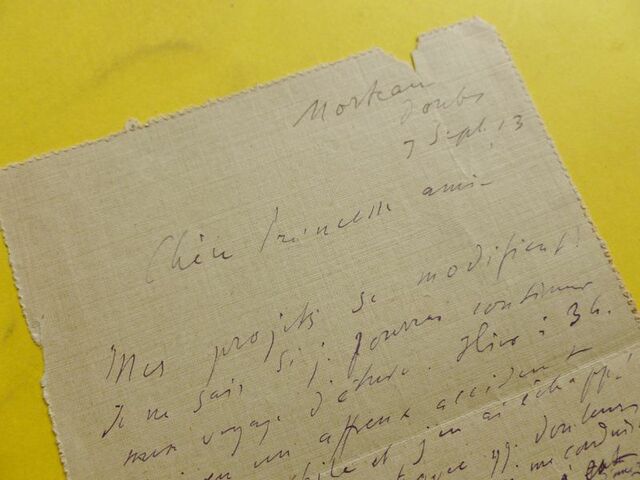 Morteau
Doubs
7 Sept. 13
Chère Princesse amie
Mes projets se modifient!
Je ne sais si je pourrai continuer
mon voyage d'étude. Hier à 3h.
un affreux accident
et j'en ai échappé!
douleurs